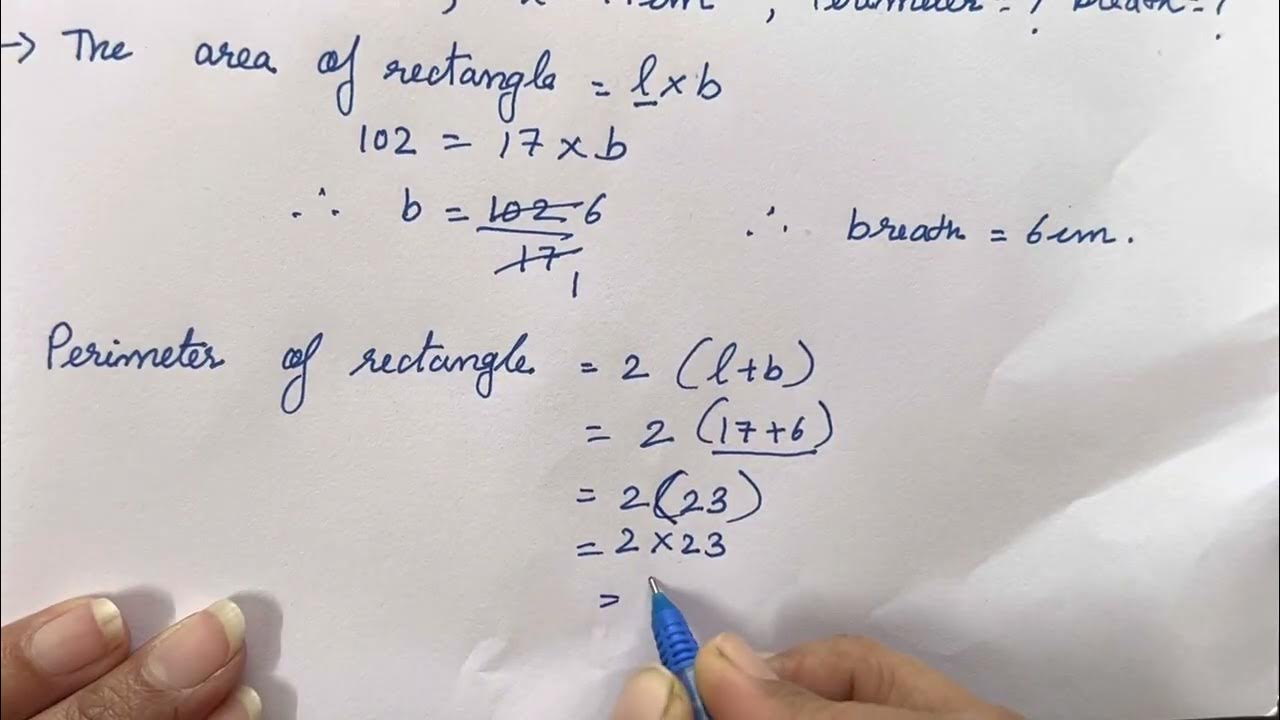 Perimeter = ? breath = ?
→ The area of rectangle = l × b
102 = 17 × b
∴ b = 102 6
17
1
∴ breath = 6 cm.
Perimeter of rectangle = 2 (l+b)
= 2 (17+6)
= 2(23)
= 2 × 23
=